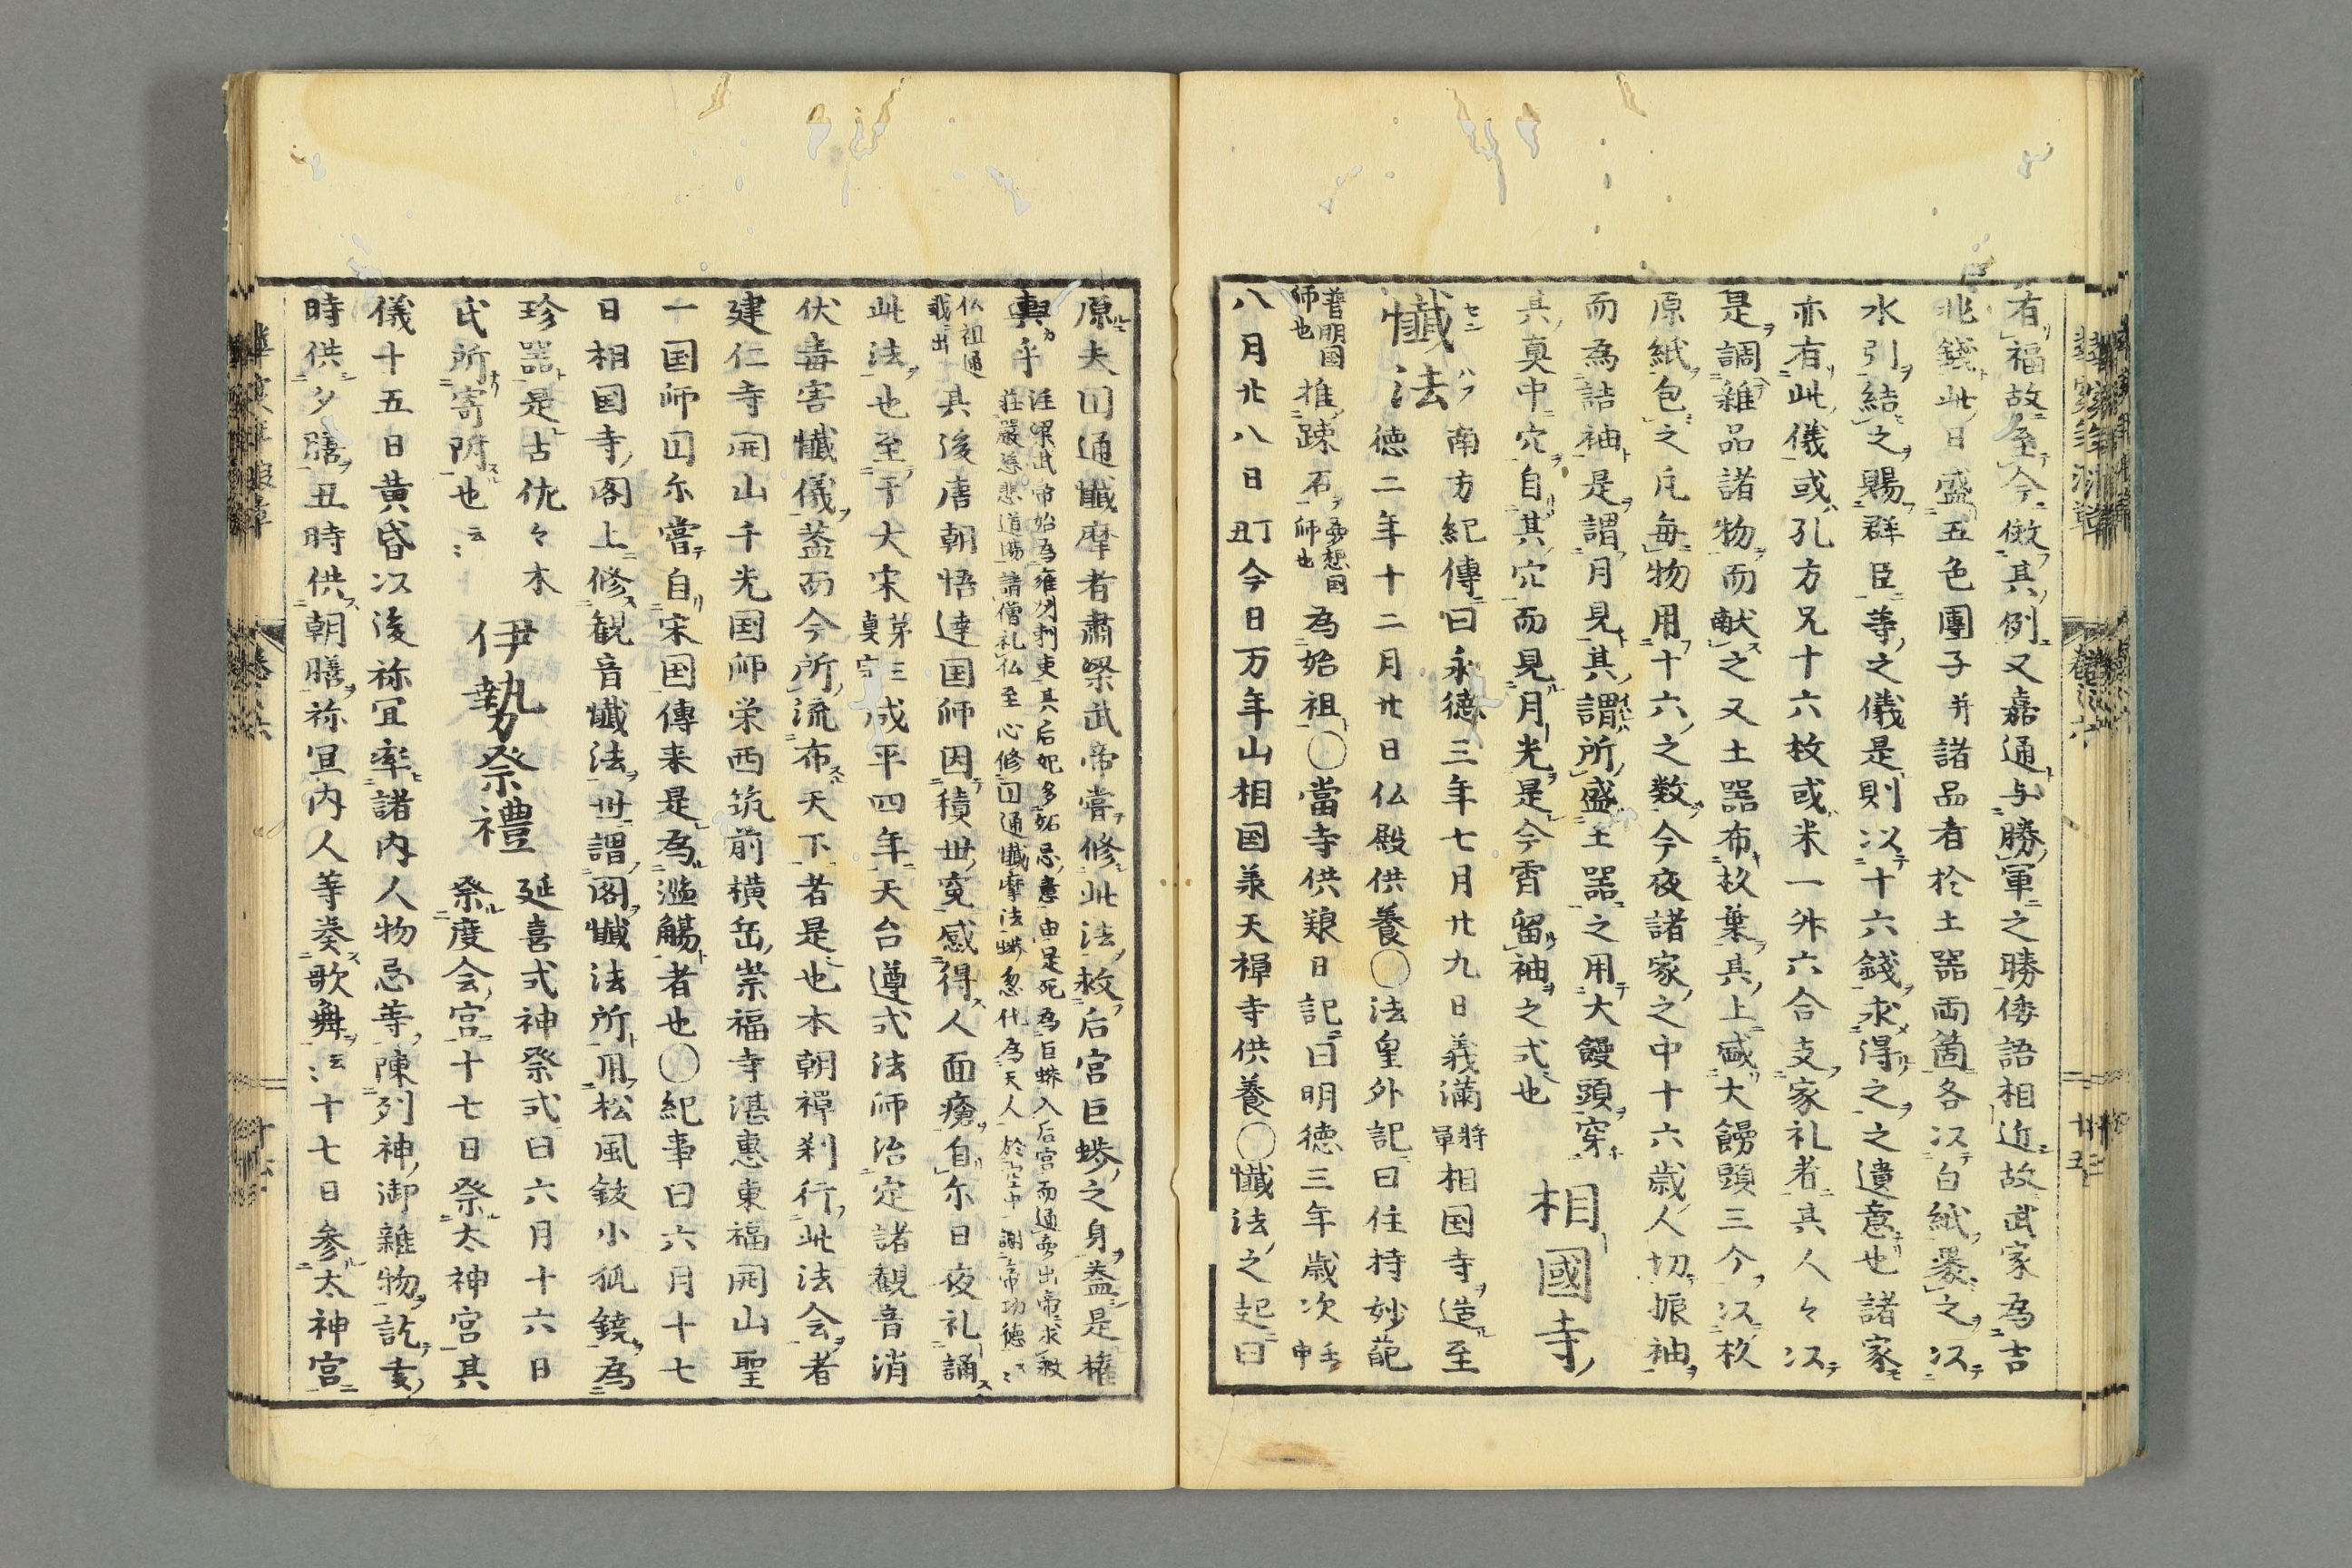 有福故至今倣其例又嘉通与勝軍之勝倭語相近故武家為吉
兆錢此日盛五色團子并諸品者於土器両箇各以白紙裹之以
水引結之賜群臣等之儀是則以十六錢求得之之遺意也諸家
亦有此儀或孔方兄十六枚或米一升六合支家礼者其人々以
是調雑品諸物而献之又土器布杉葉其上盛大饅頭三今以杉
原紙包之凡毎物用十六之数今夜諸家之中十六歳人切振袖
而為詰袖是謂月見其謂所盛土器之用大饅頭穿
其真中穴自其穴而見月光是今宵留袖之式也
相國寺
懴法
セン ハフ
南方紀傳曰永徳三年七月廿九日義満将軍相国寺造至
徳二年十二月廿日仏殿供養〇法皇外記曰住持妙葩
普明国師也推疎石夢想国師也為始祖〇當寺供粮日記曰明徳三年歳次壬申
八月廿八日丁丑今日万年山相国羕天禅寺供養〇懴法之起曰
原夫円通懴摩者肅梁武帝嘗修此法救后宮巨蟒之身蓋是権
輿乎
注梁武帝始為雍州刺吏其后妃多妬忌恚由是死為巨蟒入后宮而通夢出帝求救
荘厳慈悲道場請僧礼仏至心修円通懴摩法蟒忽化為天人於空中謝帝功徳云云
仏祖通載出
其後唐朝悟達国師因積世寃感得人面瘡自尔日夜礼誦
此法也至于大宋第三真宗咸平四年天台遵式法師治定諸観音消
伏毒害懴儀蓋而今所流布天下者是也本朝禅刹行此法会者
建仁寺開山千光国師栄西筑前横岳崇福寺湛惠東福開山聖
一国師円尓嘗自宋国傳来是為濫觴者也〇紀事曰六月十七
日相国寺閣上修観音懴法世謂閣懴法所用松風鈸小狐鐃為
珍器是古仇々木
氏所寄附也云云
伊勢祭禮
延喜式神祭式曰六月十六日
祭度会宮十七日祭太神宮其
儀十五日黄昏以後祢宜率諸内人物忌等陳列神御雑物訖亥
時供夕膳丑時供朝膳祢宜内人等奏歌舞云云十七日参太神宮